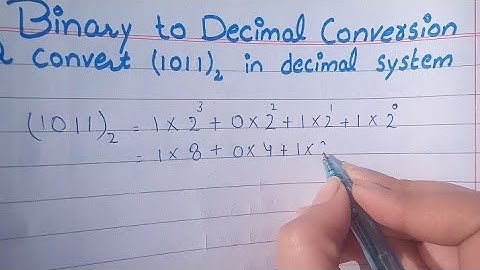 Binary to Decimal Conversion
convert (1011)₂ in decimal system
(1011)₂ = 1 × 2³ + 0 × 2² + 1 × 2¹ + 1 × 2⁰
= 1 × 8 + 0 × 4 + 1 ×